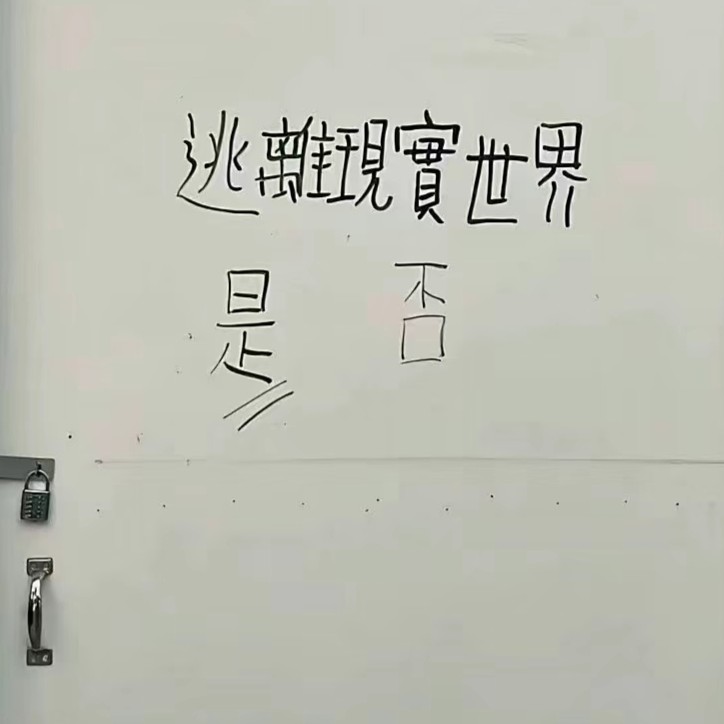 逃離現實世界
是 否